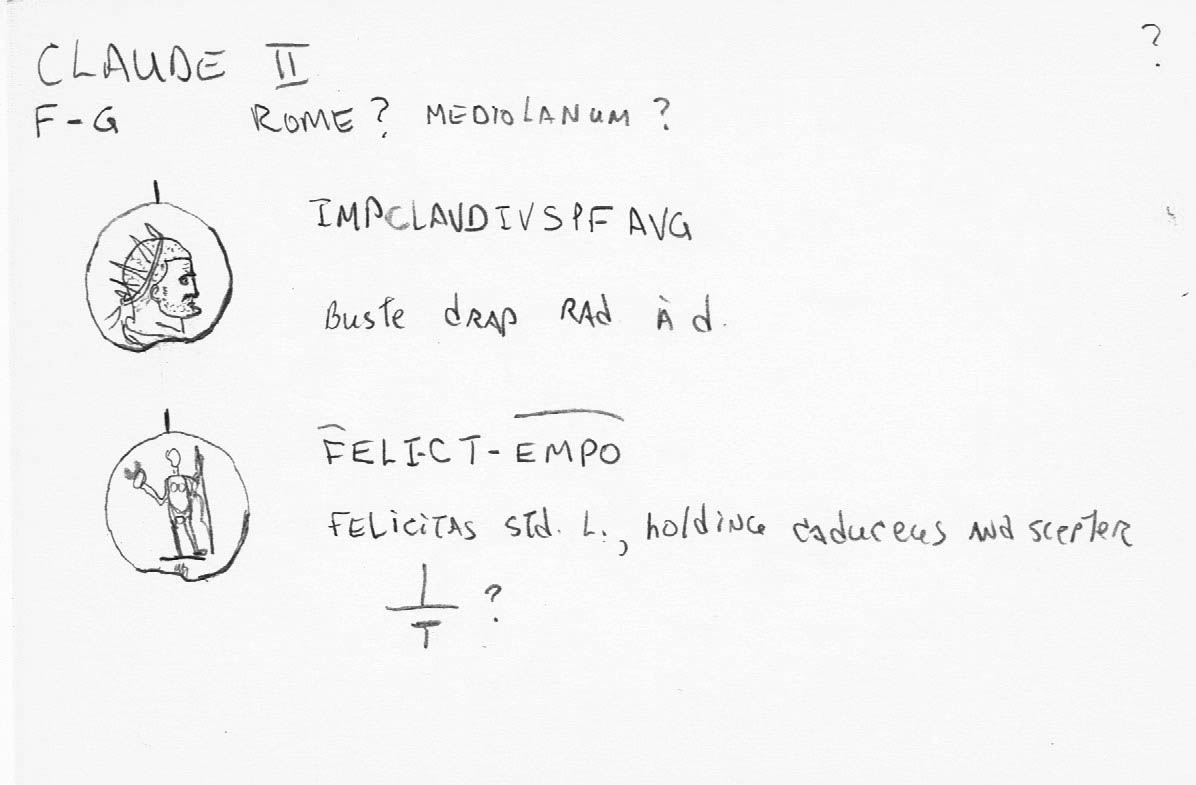 ?
CLAUDE II
F-G ROME? MEDIOLANUM?
IMPCLAVDIVSPFAVG
Buste dRAP RAd À d.
FELI-CT-EMPO
FELiciTAS sTd. L., holdiNG caduceus ANd scepTeR
T ?